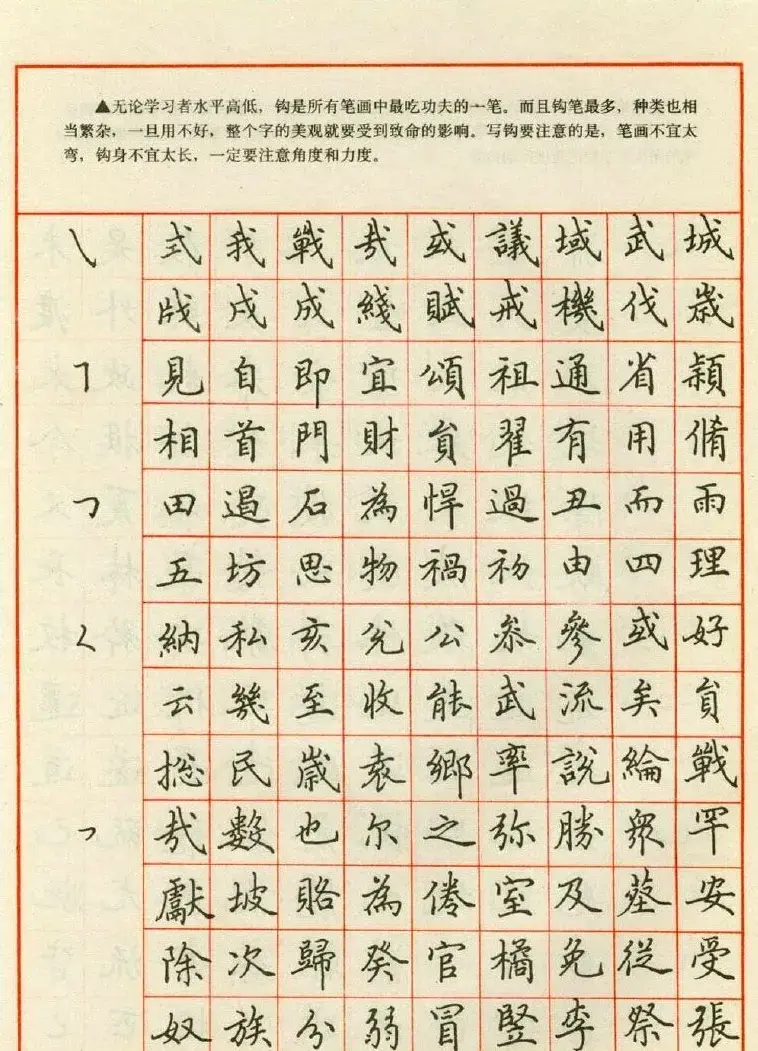 ▲无论学习者水平高低，钩是所有笔画中最吃功夫的一笔。而且钩笔最多，种类也相
当繁杂，一旦用不好，整个字的美观就要受到致命的影响。写钩要注意的是，笔画不宜太
弯，钩身不宜太长，一定要注意角度和力度。
㇏ 式 我 戰 哉 或 議 域 武 城
戌 成 綫 賦 戒 機 伐 歲
㇕ 見 自 即 宜 頌 祖 通 省 穎
相 首 門 財 負 翟 有 用 脩
㇆ 田 過 石 為 悍 過 丑 而 雨
五 坊 思 物 禍 初 由 四 理
㇛ 納 私 亥 兊 公 叅 參 或 好
云 幾 至 收 能 武 流 矣 負
摠 民 歲 袁 鄉 率 說 綸 戰
㇇ 哉 數 也 尔 之 弥 勝 眾 罕
獻 坡 賂 為 倦 室 及 墓 安
除 次 歸 癸 官 橘 免 從 受
奴 族 分 弱 冒 竪 李 祭 張